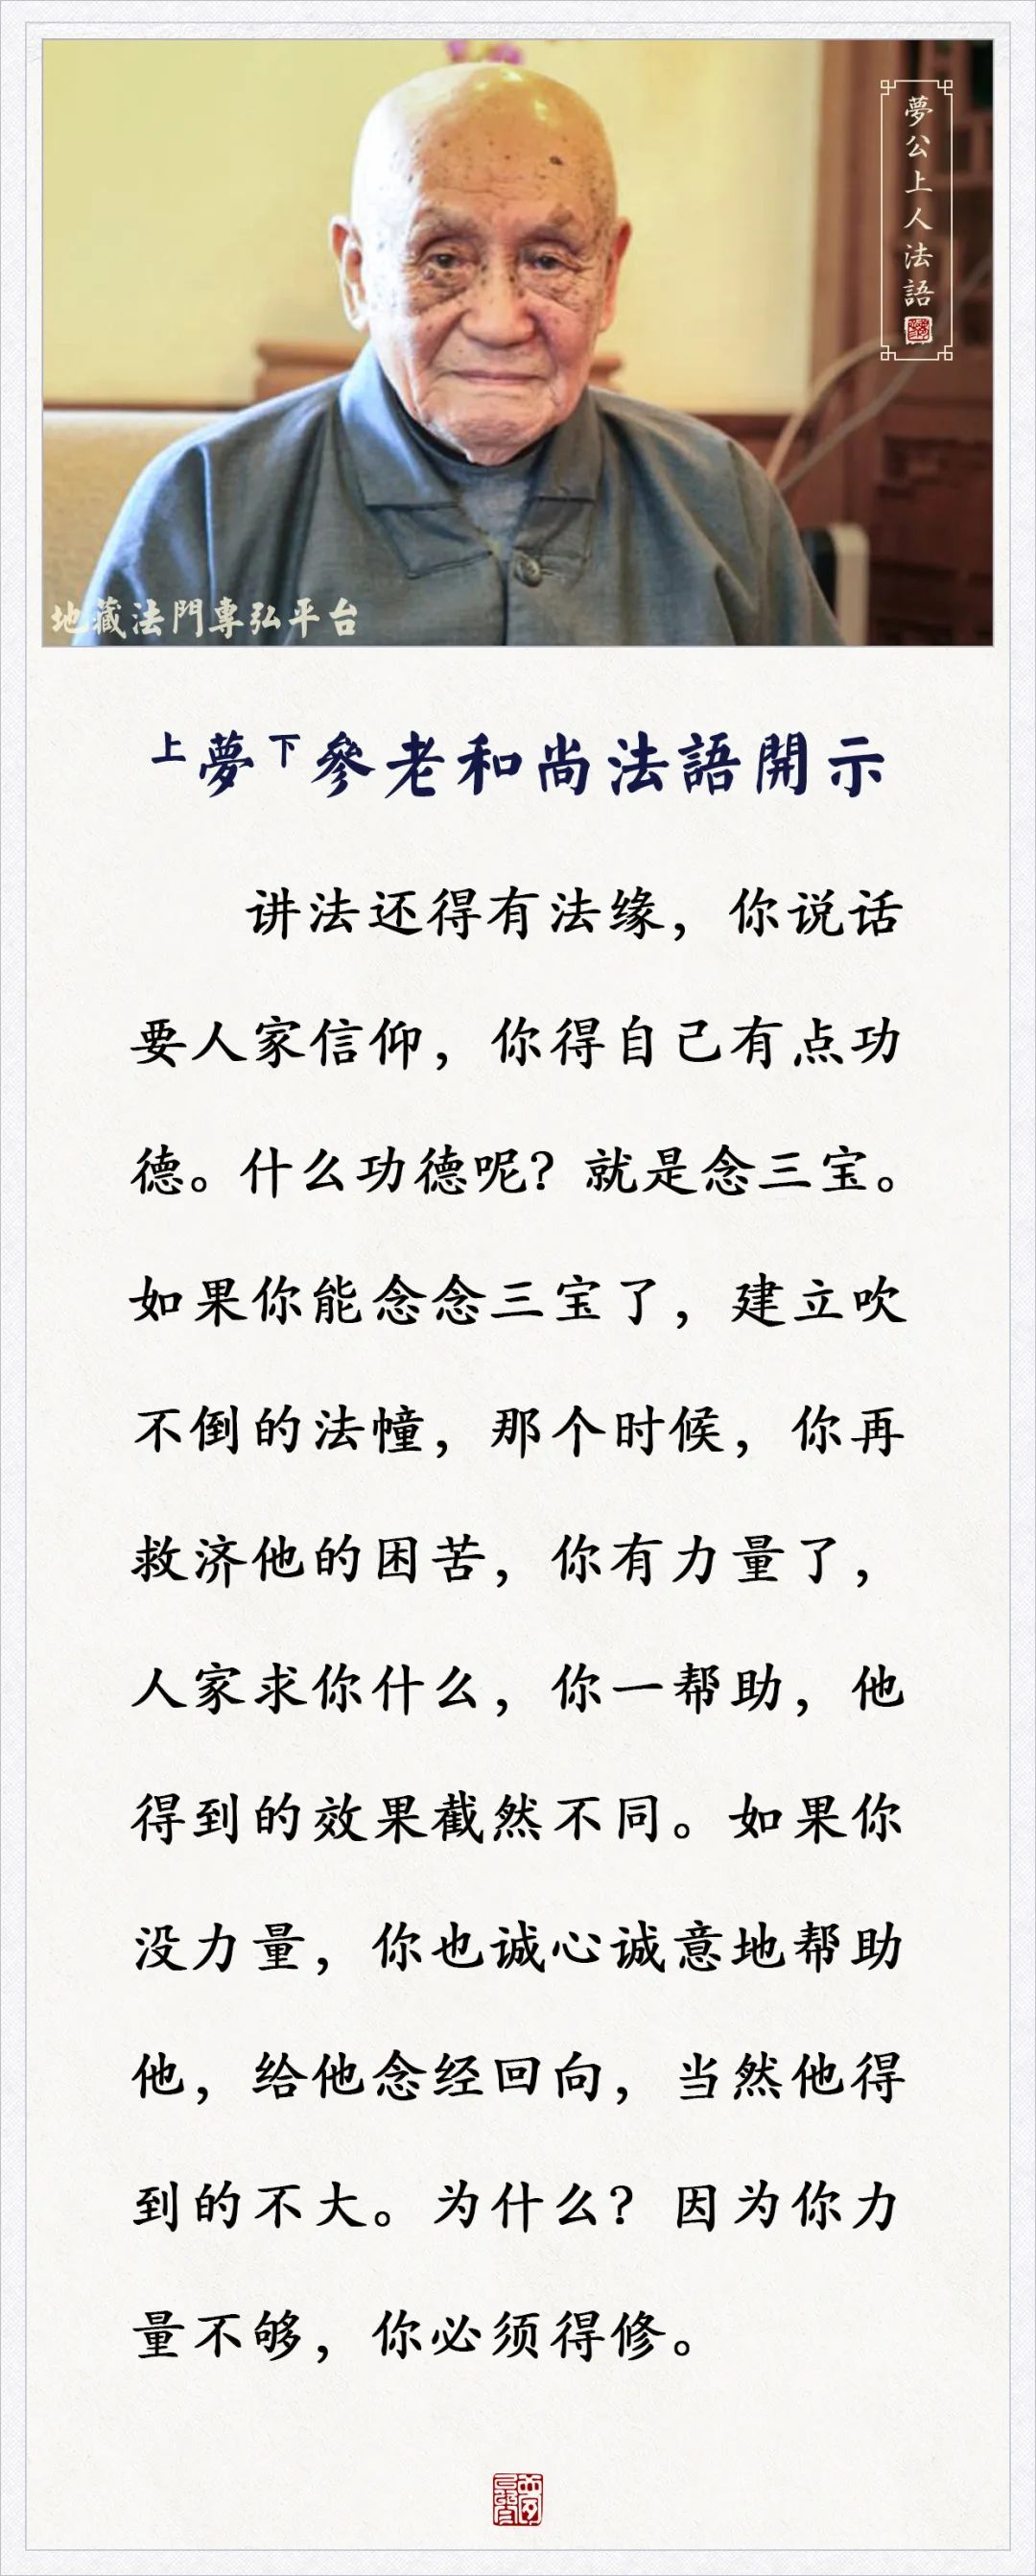 夢公上人法語
地藏法門專弘平台
上夢下參老和尚法語開示
讲法还得有法缘，你说话
要人家信仰，你得自己有点功
德。什么功德呢？就是念三宝。
如果你能念念三宝了，建立吹
不倒的法幢，那个时候，你再
救济他的困苦，你有力量了，
人家求你什么，你一帮助，他
得到的效果截然不同。如果你
没力量，你也诚心诚意地帮助
他，给他念经回向，当然他得
到的不大。为什么？因为你力
量不够，你必须得修。